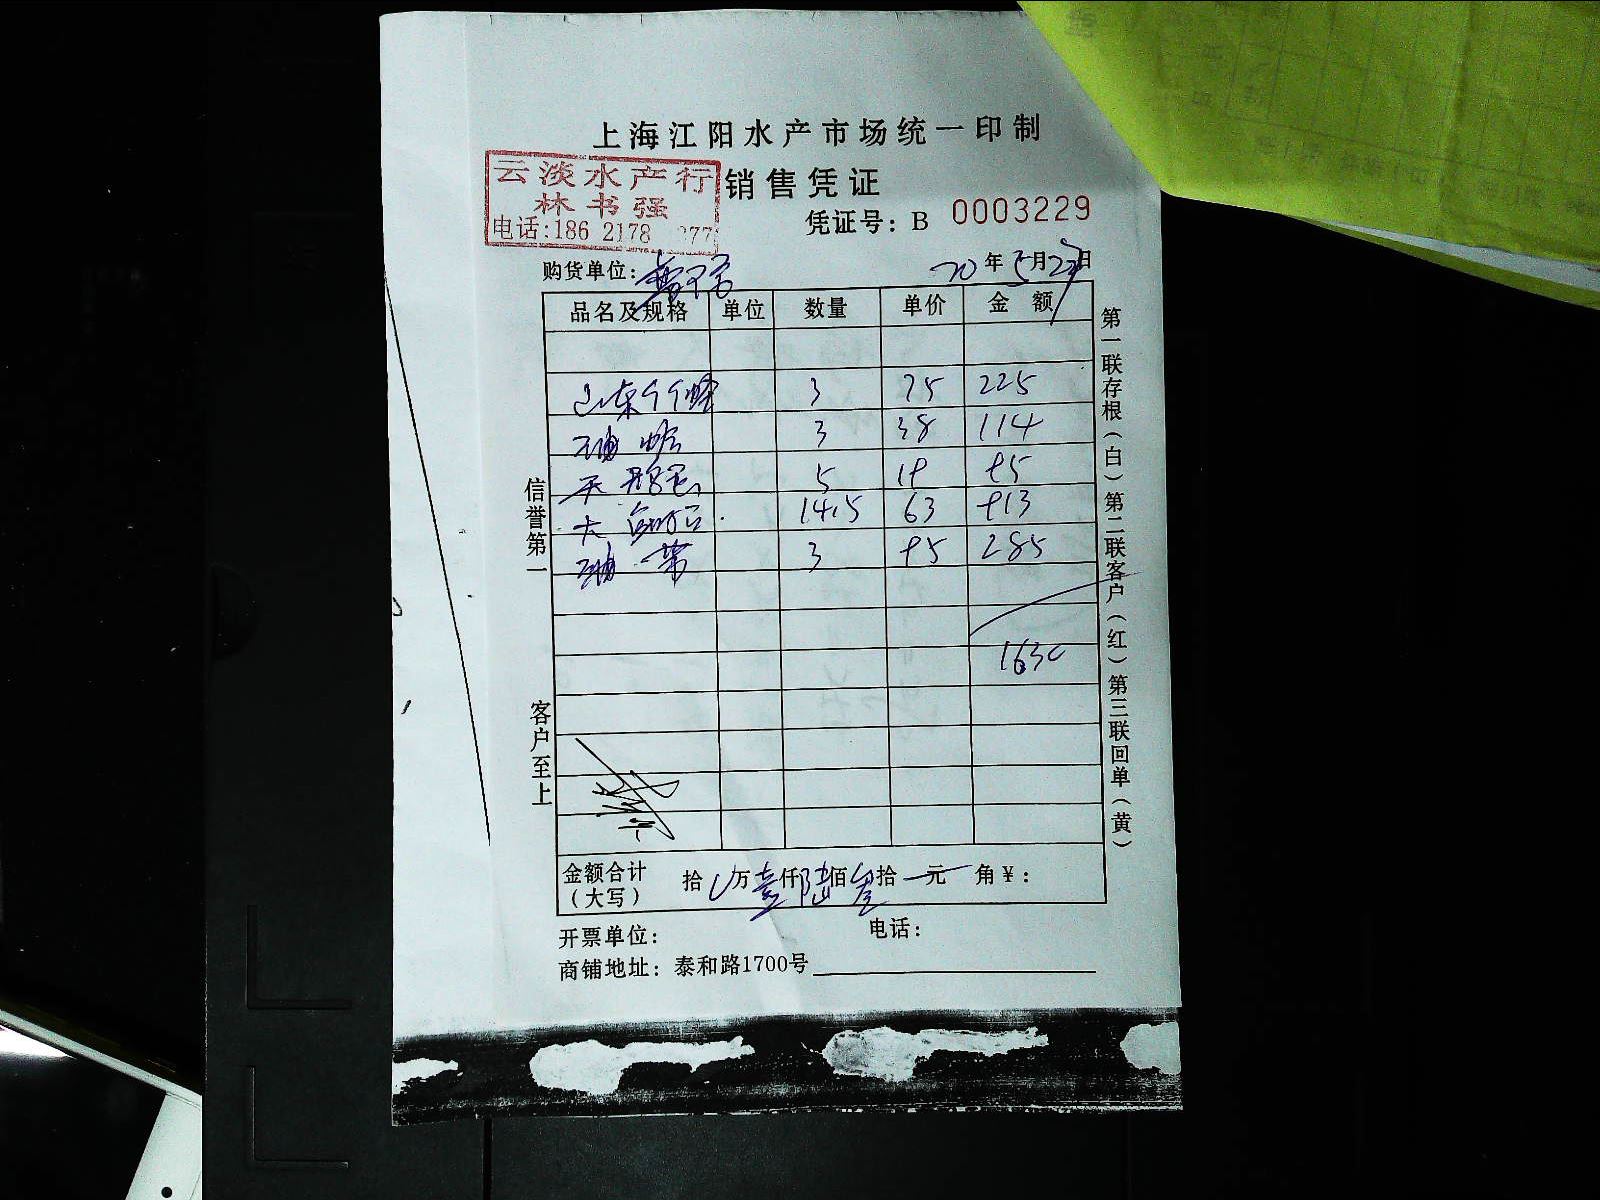 上海江阳水产市场统一印制
云淡水产行
林书强
电话:186 2178 277
销售凭证
凭证号: B 0003229
购货单位:
20年5月27日
品名及规格 单位 数量 单价 金额
山东 3 75 225
3 38 114
5 19 95
大 14.5 63 913
带 3 95 285
1630
金额合计(大写) 拾 万壹仟陆佰叁拾 元 角¥:
开票单位: 电话:
商铺地址: 泰和路1700号
信誉第一
客户至上
第一联存根(白)第二联客户(红)第三联回单(黄)